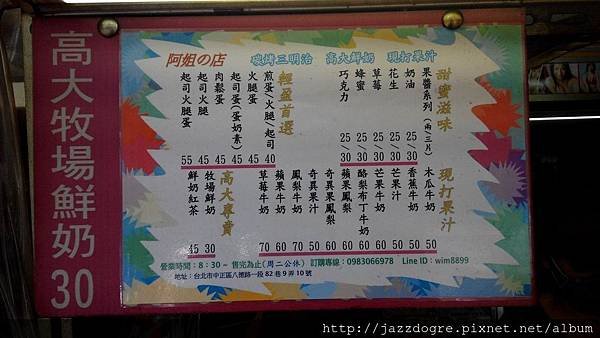 高大牧場鮮奶30
阿姐の店 碳烤三明治 高大鮮奶 現打果汁
甜蜜滋味
果醬系列(兩/三片)
奶油 25/30
花生 25/30
草莓 25/30
蜂蜜 25/30
巧克力 25/30
輕盈首選
煎蛋/火腿/起司 40
火腿蛋 45
起司蛋(蛋奶素) 45
肉鬆蛋 45
起司火腿 45
起司火腿蛋 55
現打果汁
木瓜牛奶 50
香蕉牛奶 50
芒果牛奶 50
芒果汁 50
酪梨布丁牛奶 60
蘋果鳳梨 60
奇異果鳳梨 60
奇異果汁 50
鳳梨牛奶 50
蘋果牛奶 60
草莓牛奶 70
高大專賣
牧場鮮奶 30
鮮奶紅茶 45
營業時間:8:30~ 售完為止(周二公休) 訂購專線:0983066978 Line ID:wim8899
地址:台北市中正區八德路一段82巷9弄10號
http://jazzdogre.pixnet.net/album